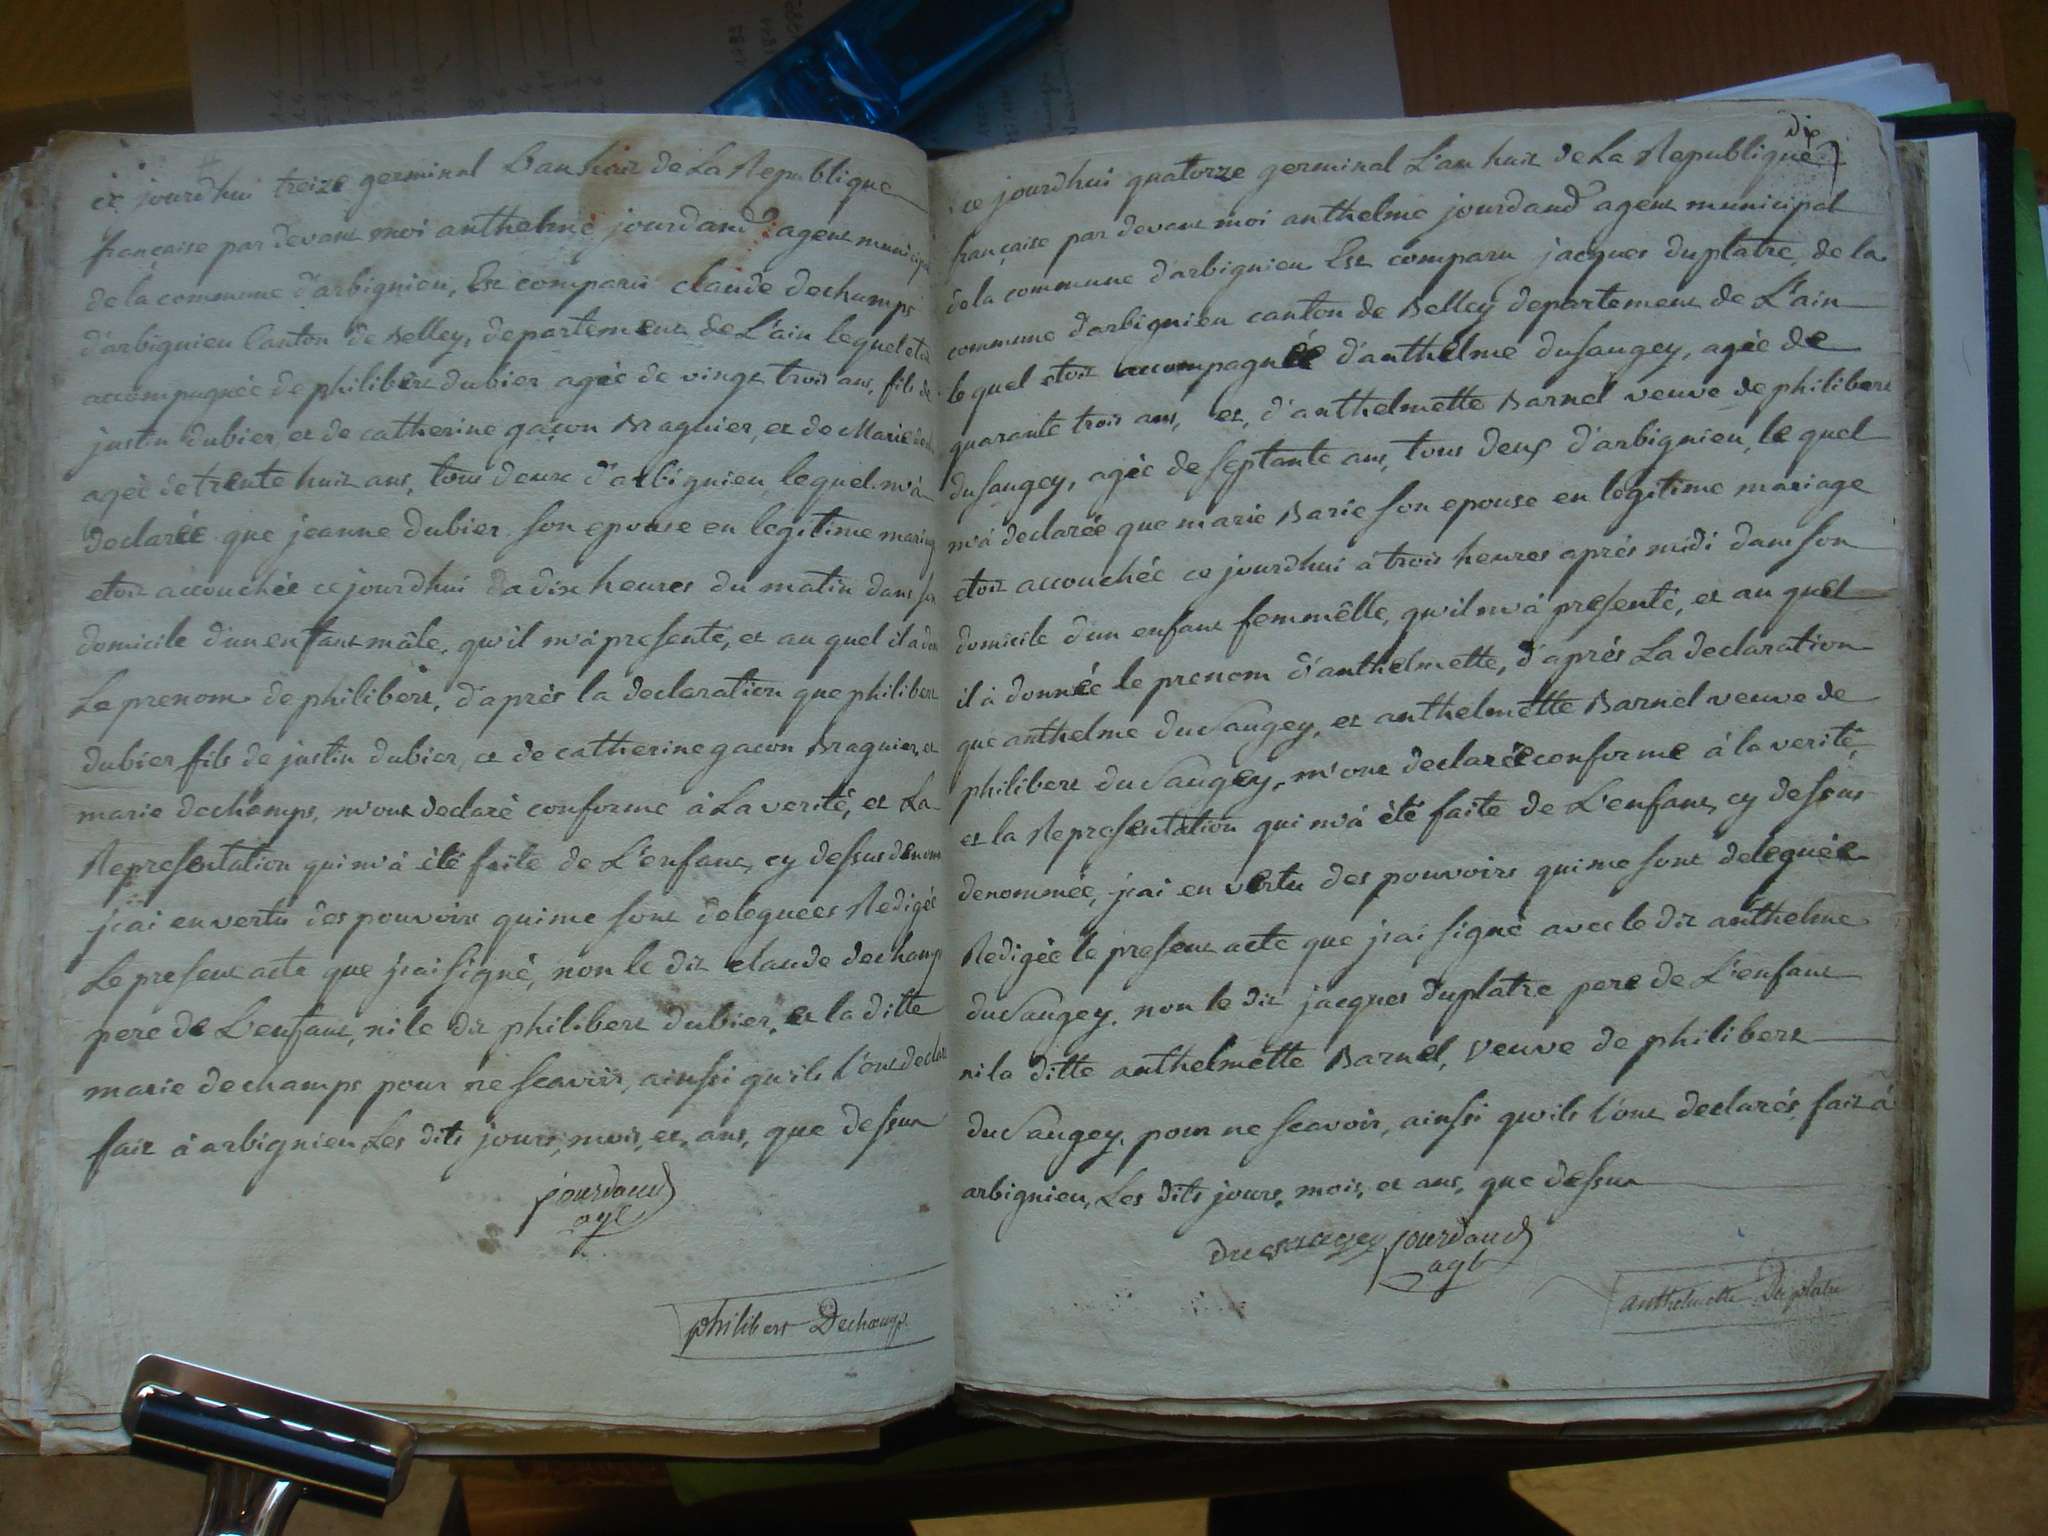 ce jourdhui treize germinal L'an huit de La Republique
française par devant moi anthelme jourdand agent municipal
de la commune d'arbignieu, Est comparu claude dechamps
d'arbignieu Canton de Belley, departement de L'ain lequel etoit
accompagnée de philibert dubier agée de vingt trois ans, fils de
justin dubier, et de catherine gaçon Bragnier, et de Marie
agée de trente huit ans, tous deux d'arbignieu, lequel m'a
declarée que jeanne dubier son epouse en legitime mariage
etoit accouchée ce jourdhui a dix heures du matin dans son
domicile d'un enfant mâle, qu'il m'a presenté, et au quel il a donné
Le prenom de philibert, d'après la declaration que philibert
dubier fils de justin dubier, et de catherine gacon Bragnier, et
marie dechamps, m'ont declaré conforme à La verité, et La
Representation qui m'à été faite de L'enfant, cy dessus denommé
j'ai en vertu des pouvoirs qui me sont deleguées Redigée
Le present acte que j'ai signé, non le dit claude dechamps
pere de L'enfant, ni le dit philibert dubier, et la ditte
marie dechamps pour ne scavoir, ainssi qu'ils l'ont declaré
fait à arbignieu Les dits jours, mois, et, ans, que dessus
jourdand
agt
philibert Dechamps
dix
ce jourdhui quatorze germinal L'an huit de La Republique
française par devant moi anthelme jourdand agent municipal
de la commune d'arbignieu Est comparu jacques duplatre, de la
commune d'arbignieu canton de Belley departement de L'ain
le quel etoit accompagnée d'anthelme dusaugey, agée de
quarante trois ans, et, d'anthelmette Barnel veuve de philibert
dusaugey, agée de septante ans, tous deux d'arbignieu, le quel
m'à declarée que marie Barie son epouse en legitime mariage
etoit accouchée ce jourdhui à trois heures après midi dans son
domicile d'un enfant femmêlle, qu'il m'à presenté, et au quel
il à donnée le prenom d'anthelmette, d'après La declaration
que anthelme duSaugey, et anthelmette Barnel veuve de
philibert duSaugey, m'ont declarée conforme à la verité,
et la Representation qui m'à été faite de L'enfant, cy dessus
denommée, j'ai en vertu des pouvoirs qui me sont deleguée
Redigée le present acte que j'ai signé avec le dit anthelme
duSaugey, non le dit jacques duplatre pere de L'enfant
ni la ditte anthelmette Barnel, veuve de philibert
duSaugey, pour ne scavoir, ainssi qu'ils l'ont declarés, fait à
arbignieu, Les dits jours, mois, et ans, que dessus
dusaugey jourdand
agt
anthelmette Duplatre